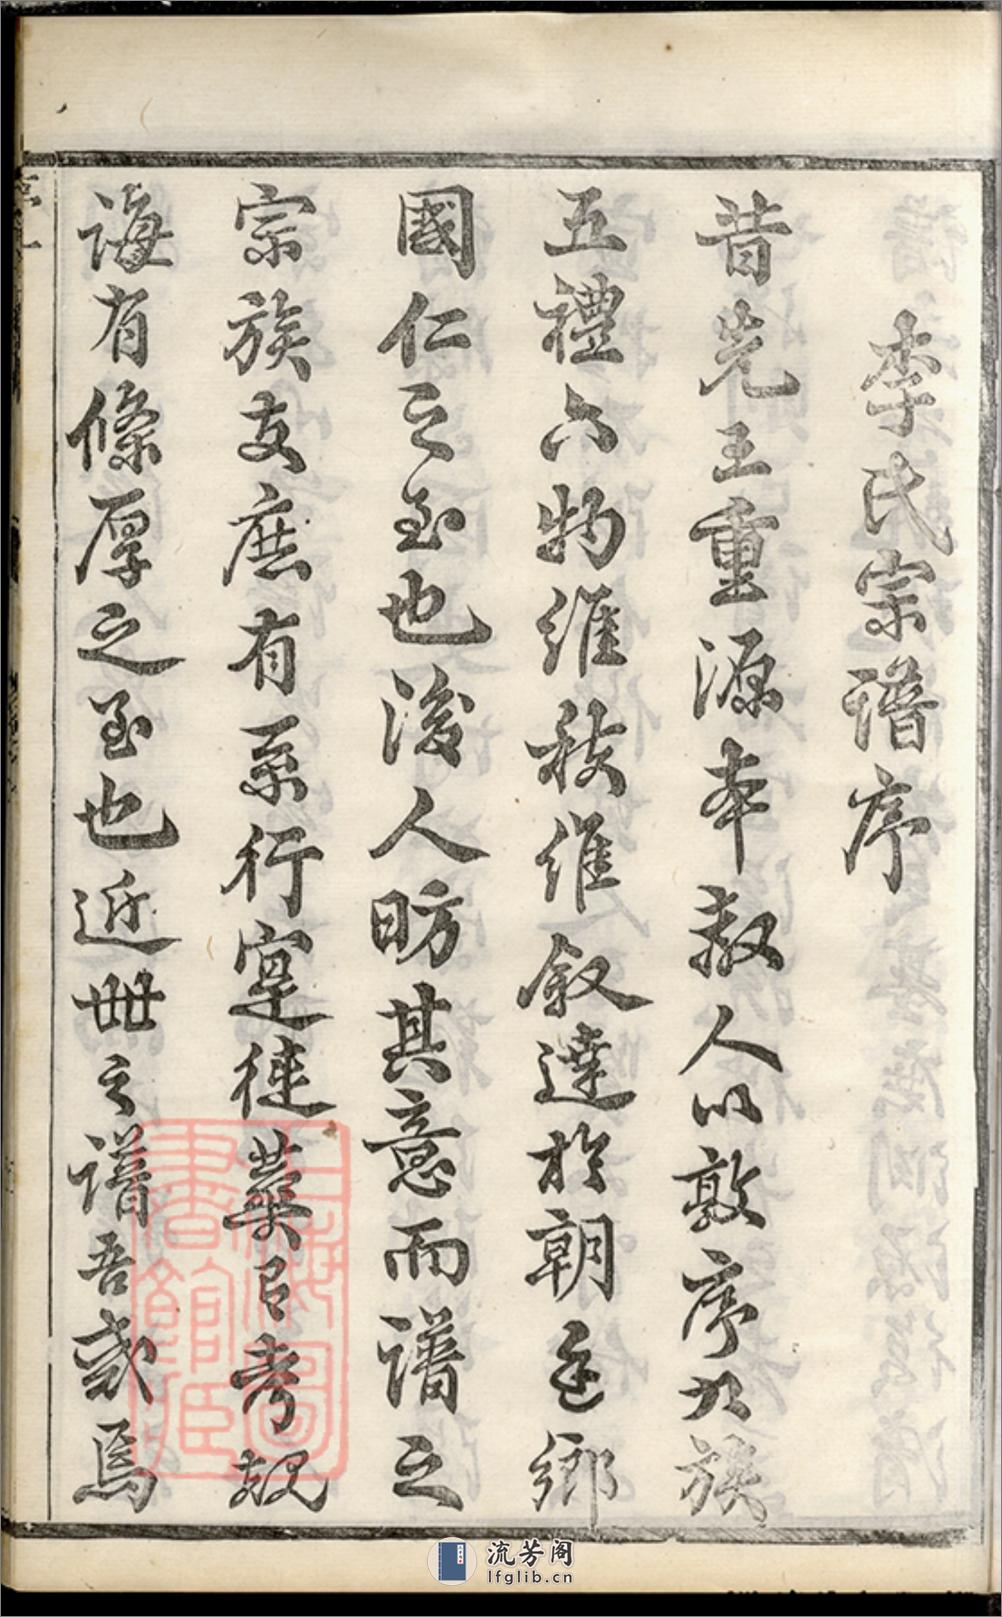 李氏宗譜序
昔先王重源本敎人以敦序九族
五禮六物維秩維叙達於朝廷鄉
國仁之至也後人昉其意而譜之
宗族支庶有系行寔徙葉有考規
誨有條厚之至也近世之譜吾惑焉
上海圖書館藏
流芳阁
lfglib.cn